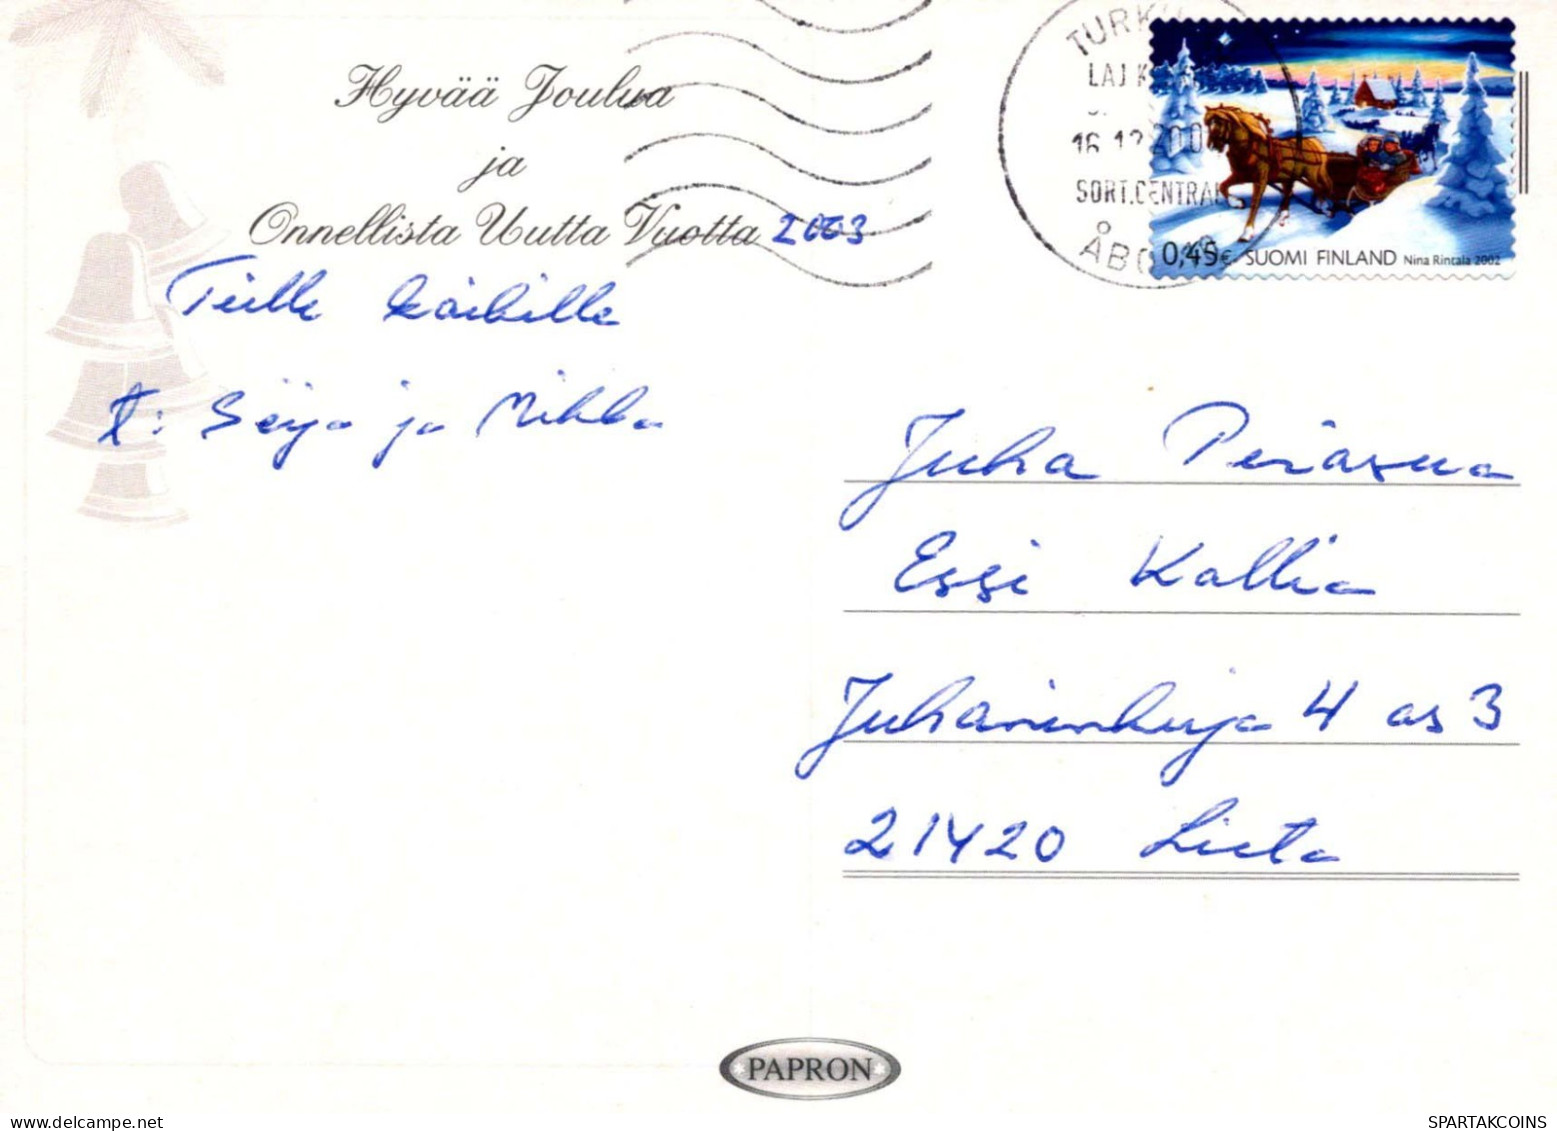 Hyvää Joulua
ja
Onnellista Uutta Vuotta 2003
Teille kaikille
T: Seija ja Mikko
TURKU
LAJ K
16.12.200
SORT.CENTRAL
ÅBO
0,45 € SUOMI FINLAND Nina Rintala 2002
Juha Periasua
Essi Kallio
Juhaninkuja 4 as 3
21420 Lieto
PAPRON
SPARTAKCOINS